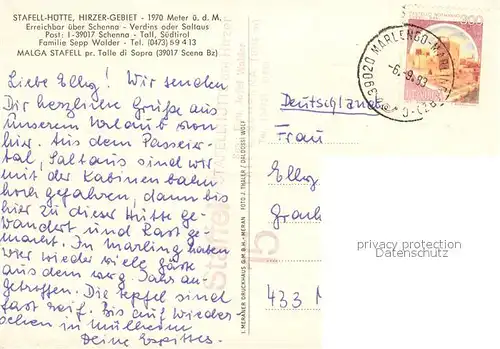 STAFELL-HÜTTE, HIRZER-GEBIET - 1970 Meter ü. d. M.
Erreichbar über Schenna - Verdins oder Saltaus
Post: I-39017 Schenna - Tall, Südtirol
Familie Sepp Walder - Tel. (0473) 59 4 13
MALGA STAFELL pr. Talle di Sopra (39017 Scena Bz)
Liebe Elly! Wir senden
Dir herzliche Grüße aus
unserem Urlaub von
hier. Aus dem Passeier-
tal, Saltaus sind wir
mit der Kabinenbahn
hoch gefahren, dann bis
hier zu dieser Hütte ge-
wandert und Rast ge-
macht. In Marling haben
wir wieder viele Gäste
aus dem vorig. Jahr an-
getroffen. Die Äpfel sind
fast reif. Bis auf Wieder-
sehen in Mülheim
Deine
I. MERANER DRUCKHAUS G.M.B.H. - MERAN FOTO J. THALER / DALDOSSI WOLF
39020 MARLENGO-MARLING
-6.-9.83
300
Deutschland
Frau
Elly
433 M
privacy protection
Datenschutz